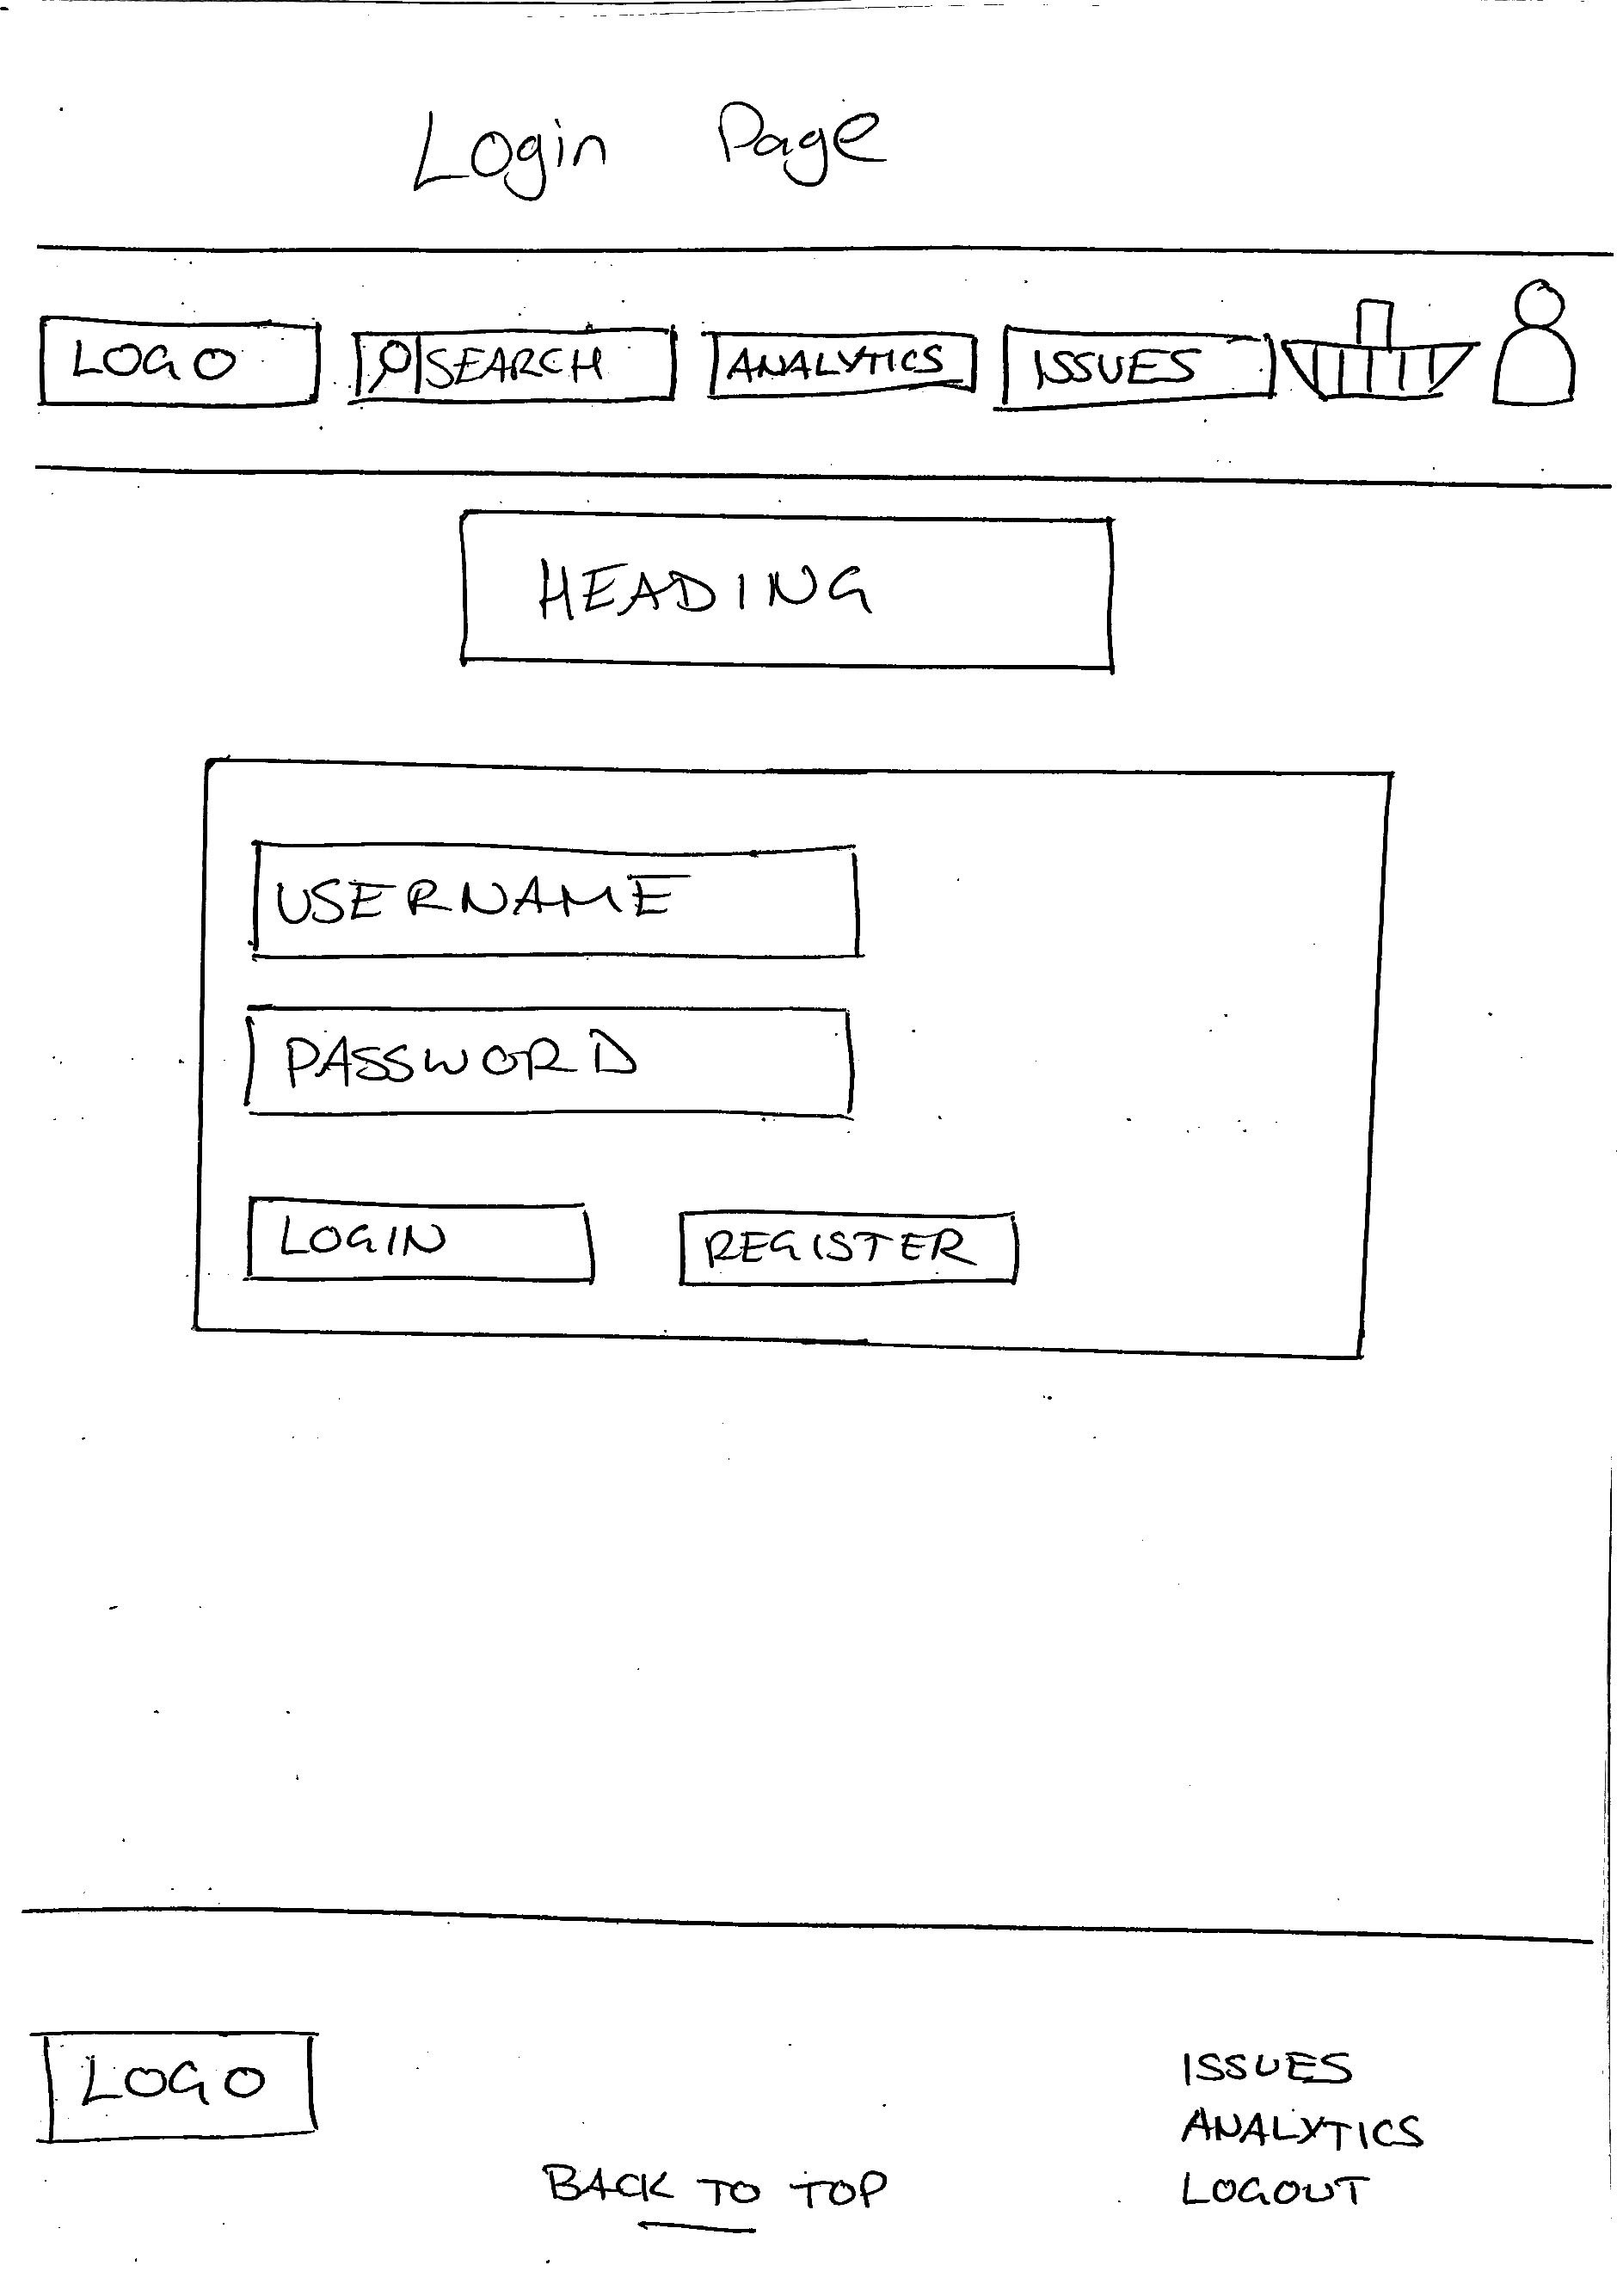 Login Page
LOGO SEARCH ANALYTICS ISSUES
HEADING
USERNAME
PASSWORD
LOGIN REGISTER
LOGO
ISSUES
ANALYTICS
BACK TO TOP
LOGOUT